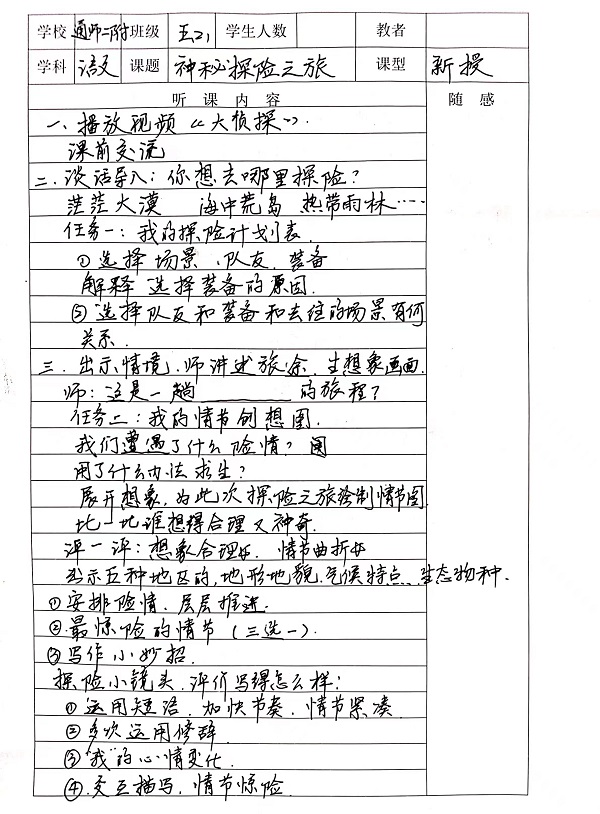 学校 通师二附 班级 五21 学生人数 教者
学科 语文 课题 神秘探险之旅 课型 新授
听课内容 随感
一、播放视频《大侦探》.
课前交流
二、谈话导入：你想去哪里探险？
茫茫大漠 海中荒岛 热带雨林……
任务一：我的探险计划表.
①选择场景、队友、装备
解释 选择装备的原因.
②选择队友和装备和去往的场景有何
关系.
三、出示情境.师讲述旅途.生想象画面.
师：这是一趟________的旅程？
任务二：我的情节创想图.
我们遭遇了什么险情？
用了什么办法求生？
展开想象，为此次探险之旅绘制情节图.
比一比谁想得合理又神奇.
评一评：想象合理好. 情节曲折好
出示五种地区的，地形地貌、气候特点、生态物种.
①安排险情、层层推进.
②最惊险的情节（三选一）.
③写作小妙招.
探险小镜头.评价写得怎么样：
①运用短语.加快节奏.情节紧凑
②多次运用修辞
③"我"的心情变化.
④交互描写.情节惊险.